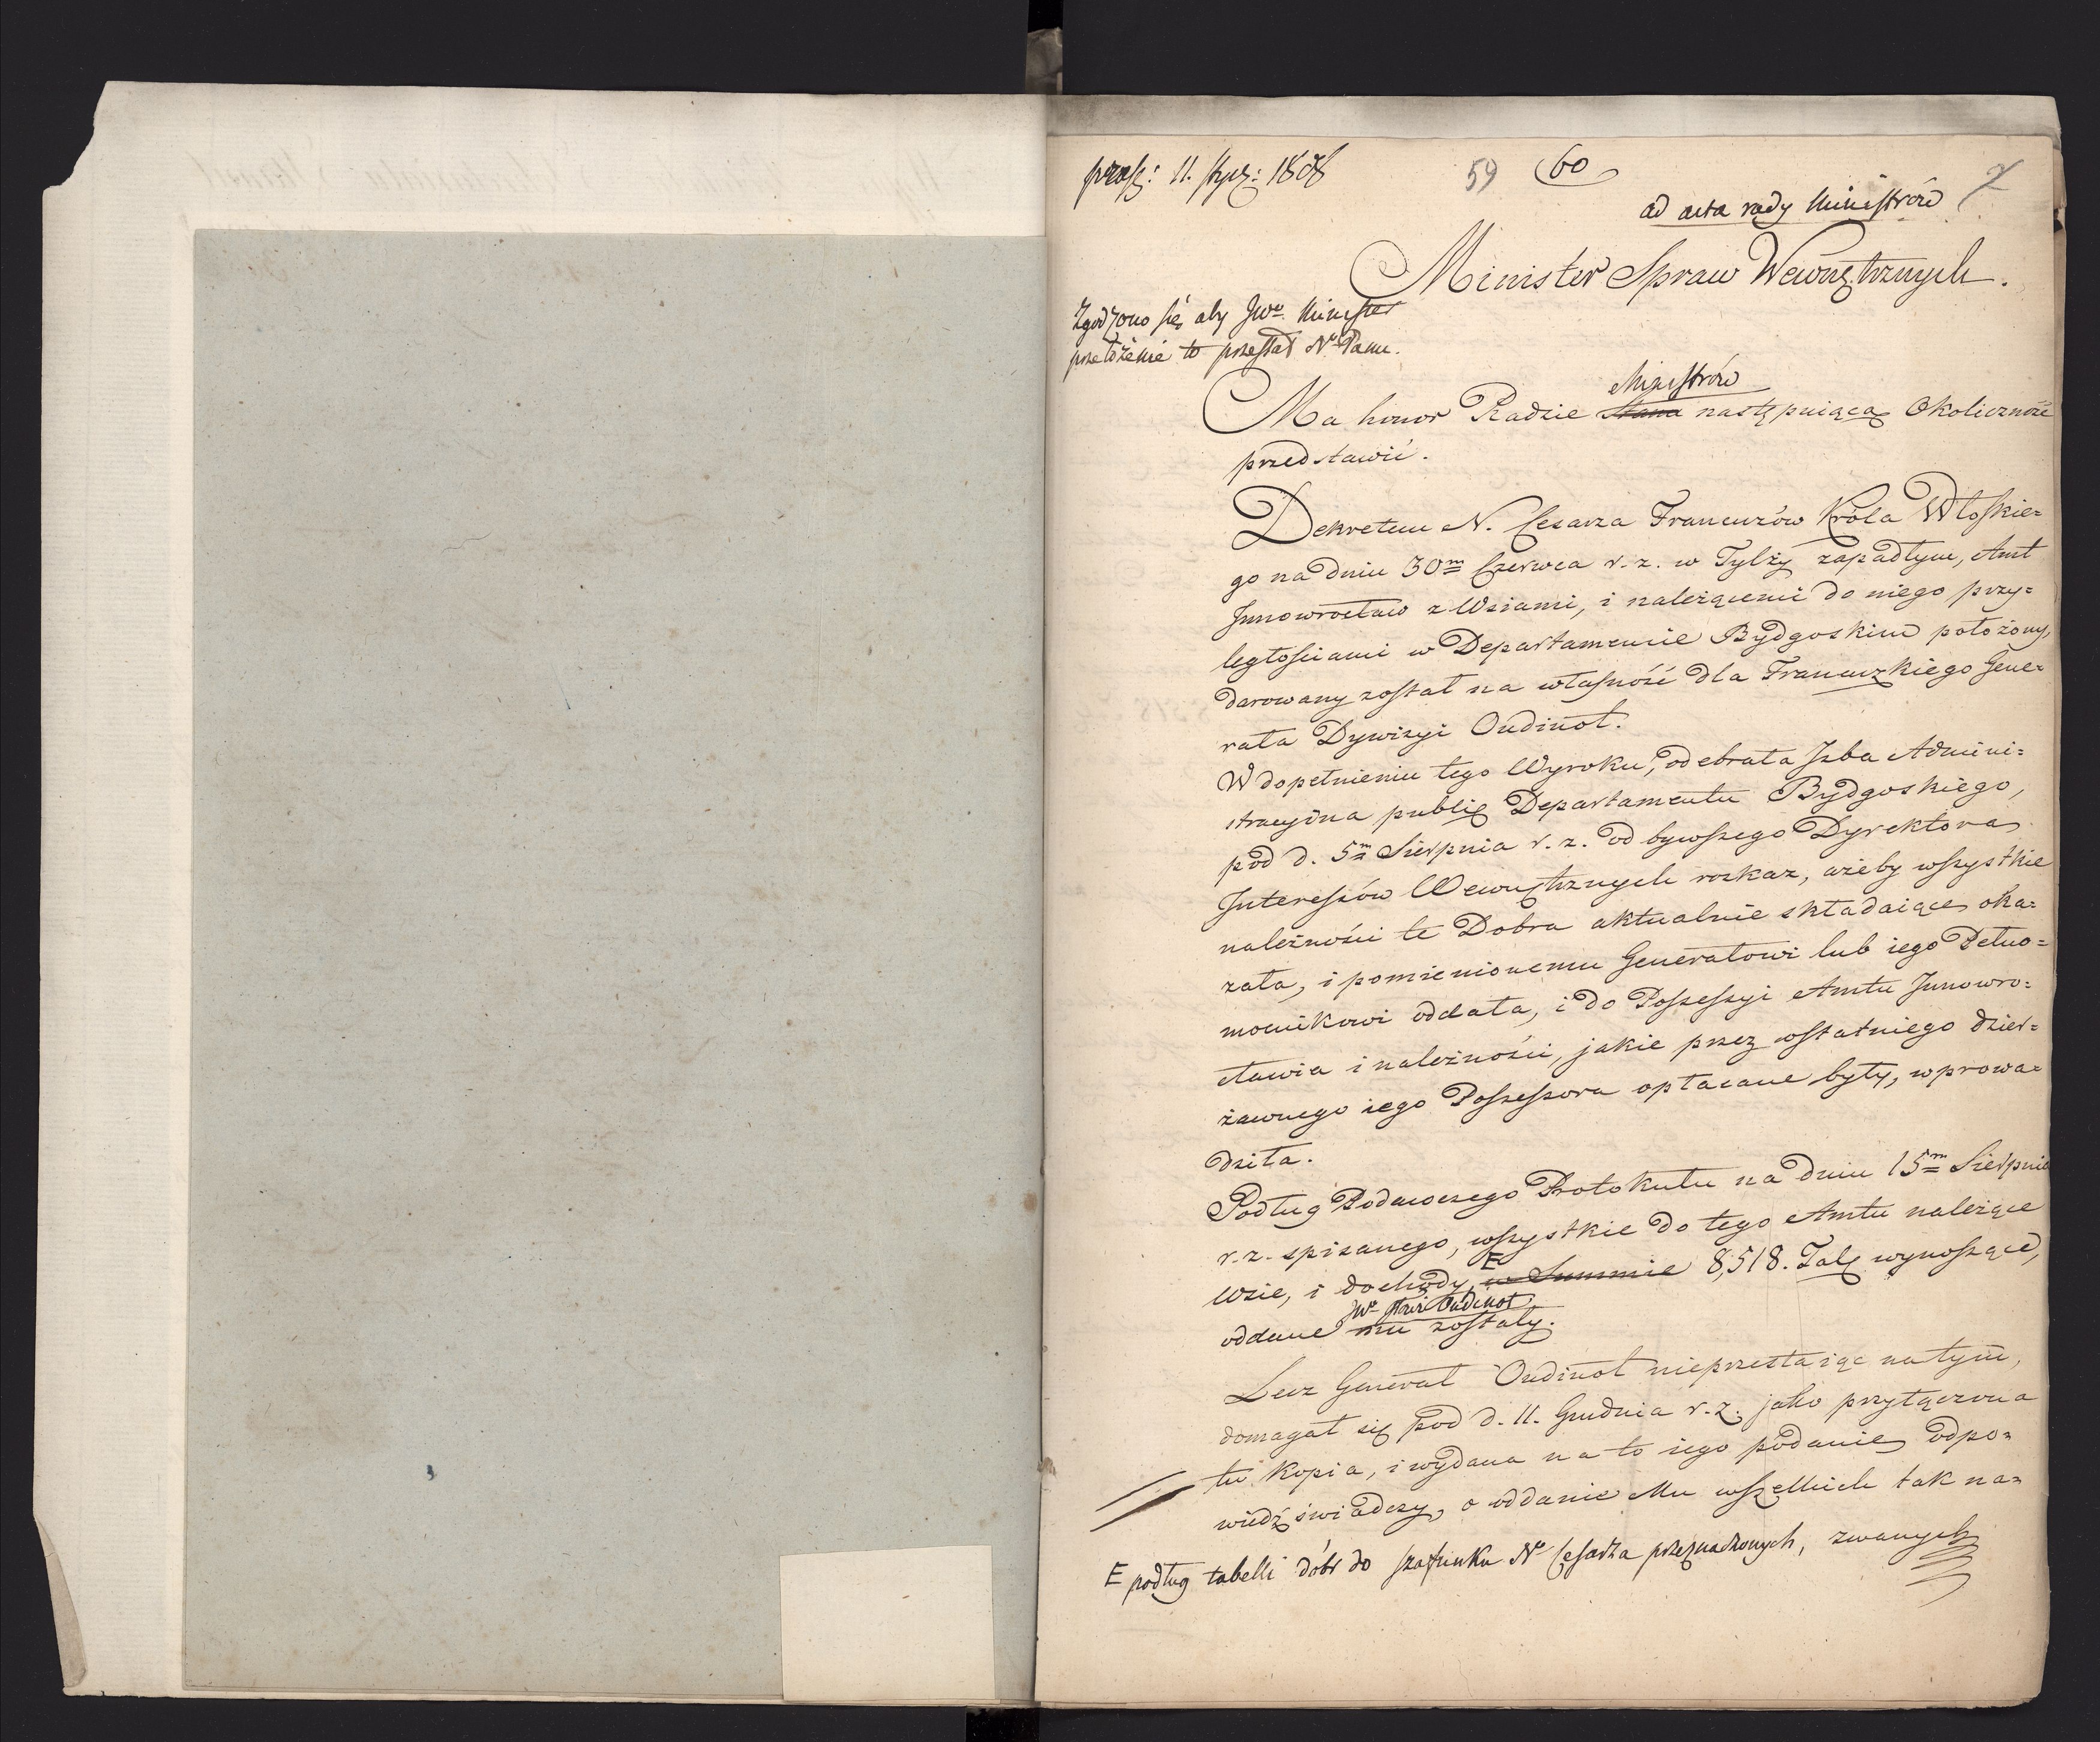 59 60 7
ad acta rady Ministrów
Minister Spraw Wewnętrznych.
Zgodzono się aby JWu Minister
przełożenie to przesłał No Panu.
Ministrów
Ma honor Radzie Stanu następuiącą Okoliczność
przedstawić.
Dekretem N. Cesarza Francuzów Króla Włoskie=
go na dniu 30m Czerwca r. z. w Tylży zapadłym, Amt
Jnnowrocław z Wsiami, i należącemi do niego przy=
ległościami w Departamencie Bydgoskim położony,
darowany został na własność dla Francuzkiego Gene=
rała Dywizyi Oudinot.
W dopełnieniu tego Wyroku, odebrała Jzba Admini=
stracyina public Departamentu Bydgoskiego,
pod d. 5m Sierpnia r. z. od bywszego Dyrektora
Interessów Wewnętrznych rozkaz, ażeby wszystkie
należności te Dobra aktualnie składaiące oka=
zała, i pomienionemu Generałowi lub iego Pełno=
mocnikowi oddała, i do Possessyi Amtu Jnnowro=
cławia i należności, jakie przez ostatniego dzier=
żawnego iego Possessora opłacane były, wprowa=
dziła.
Podług Podawczego Protokułu na dniu 15m Sierpnia
r. z. spisanego, wszystkie do tego Amtu należące
wsie, i dochody, E w Summie 8,518. Tal wynoszące,
JWu Oudinot
oddane mu zostały.
Lecz Generał Oudinot nieprzestaiąc na tym,
domagał się pod d. 11. Grudnia r. z. jako przyłączona
tu kopia, i wydana na to iego podanie odpo=
wiedź świadczy, o oddanie Mu wszelkich tak na=
zwanych
E podług tabelli dóbr do szafunku No Cesarza przeznaczonych,